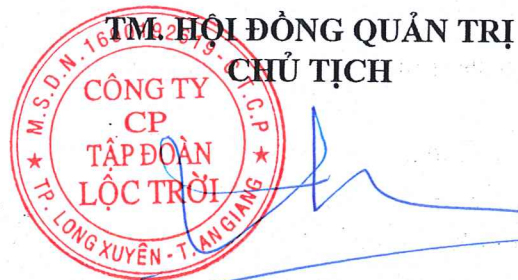 TM. HỘI ĐỒNG QUẢN TRỊ
CHỦ TỊCH
M.S.D.N. 1600192619 - C.T.C.P
CÔNG TY
CP
TẬP ĐOÀN
LỘC TRỜI
TP. LONG XUYÊN - T. AN GIANG